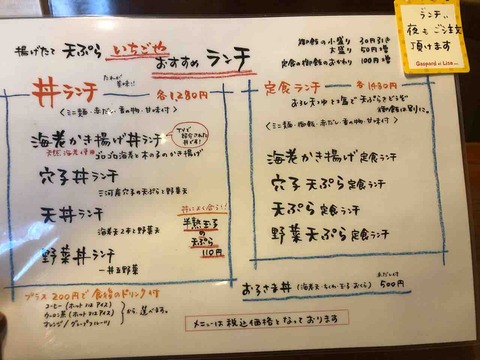 揚げたて 天ぷら いちごや
おすすめ ランチ
御飯の小盛り 30円引き
大盛り 50円増
定食の御飯のおかわり 100円増
ランチ、
夜もご注文
頂けます
Gaspard et Lisa
丼ランチ
たれが美味!!
各1,280円
〈ミニ麺・赤だし・香の物・甘味付〉
海老かき揚げ丼ランチ
天然海老使用 ゴロゴロ海老と木の子のかき揚げ
TVで紹介された丼です!
穴子丼ランチ
三河産穴子の天ぷらと野菜天
天丼ランチ
海老天2本と野菜天
野菜丼ランチ
丼によく合う!!
半熟玉子の天ぷら
110円
定食ランチ
各1,430円
おろし天つゆと塩で天ぷらをどうぞ
御飯は別に。
〈ミニ麺・御飯・赤だし・香の物・甘味付〉
海老かき揚げ定食ランチ
穴子天ぷら定食ランチ
天ぷら定食ランチ
野菜天ぷら定食ランチ
プラス200円で食後のドリンク付
コーヒー(ホット又はアイス)
ウーロン茶(ホット又はアイス)
オレンジ/グレープフルーツ
から選べます。
お子さま丼(海老天・ちくわ・玉子・おくら)
500円
メニューは税込価格となっております